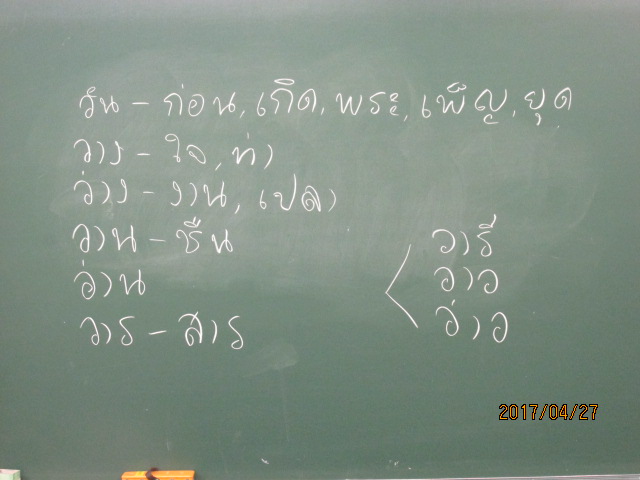 วัน - ก่อน, เกิด, พระ, เพ็ญ, ยุด
วาง - ใจ, ท่า
ว่าง - งาน, เปล่า
วาน - ซืน
อ่าน
วาร - สาร
วารี
วาว
ว่าว
2017/04/27